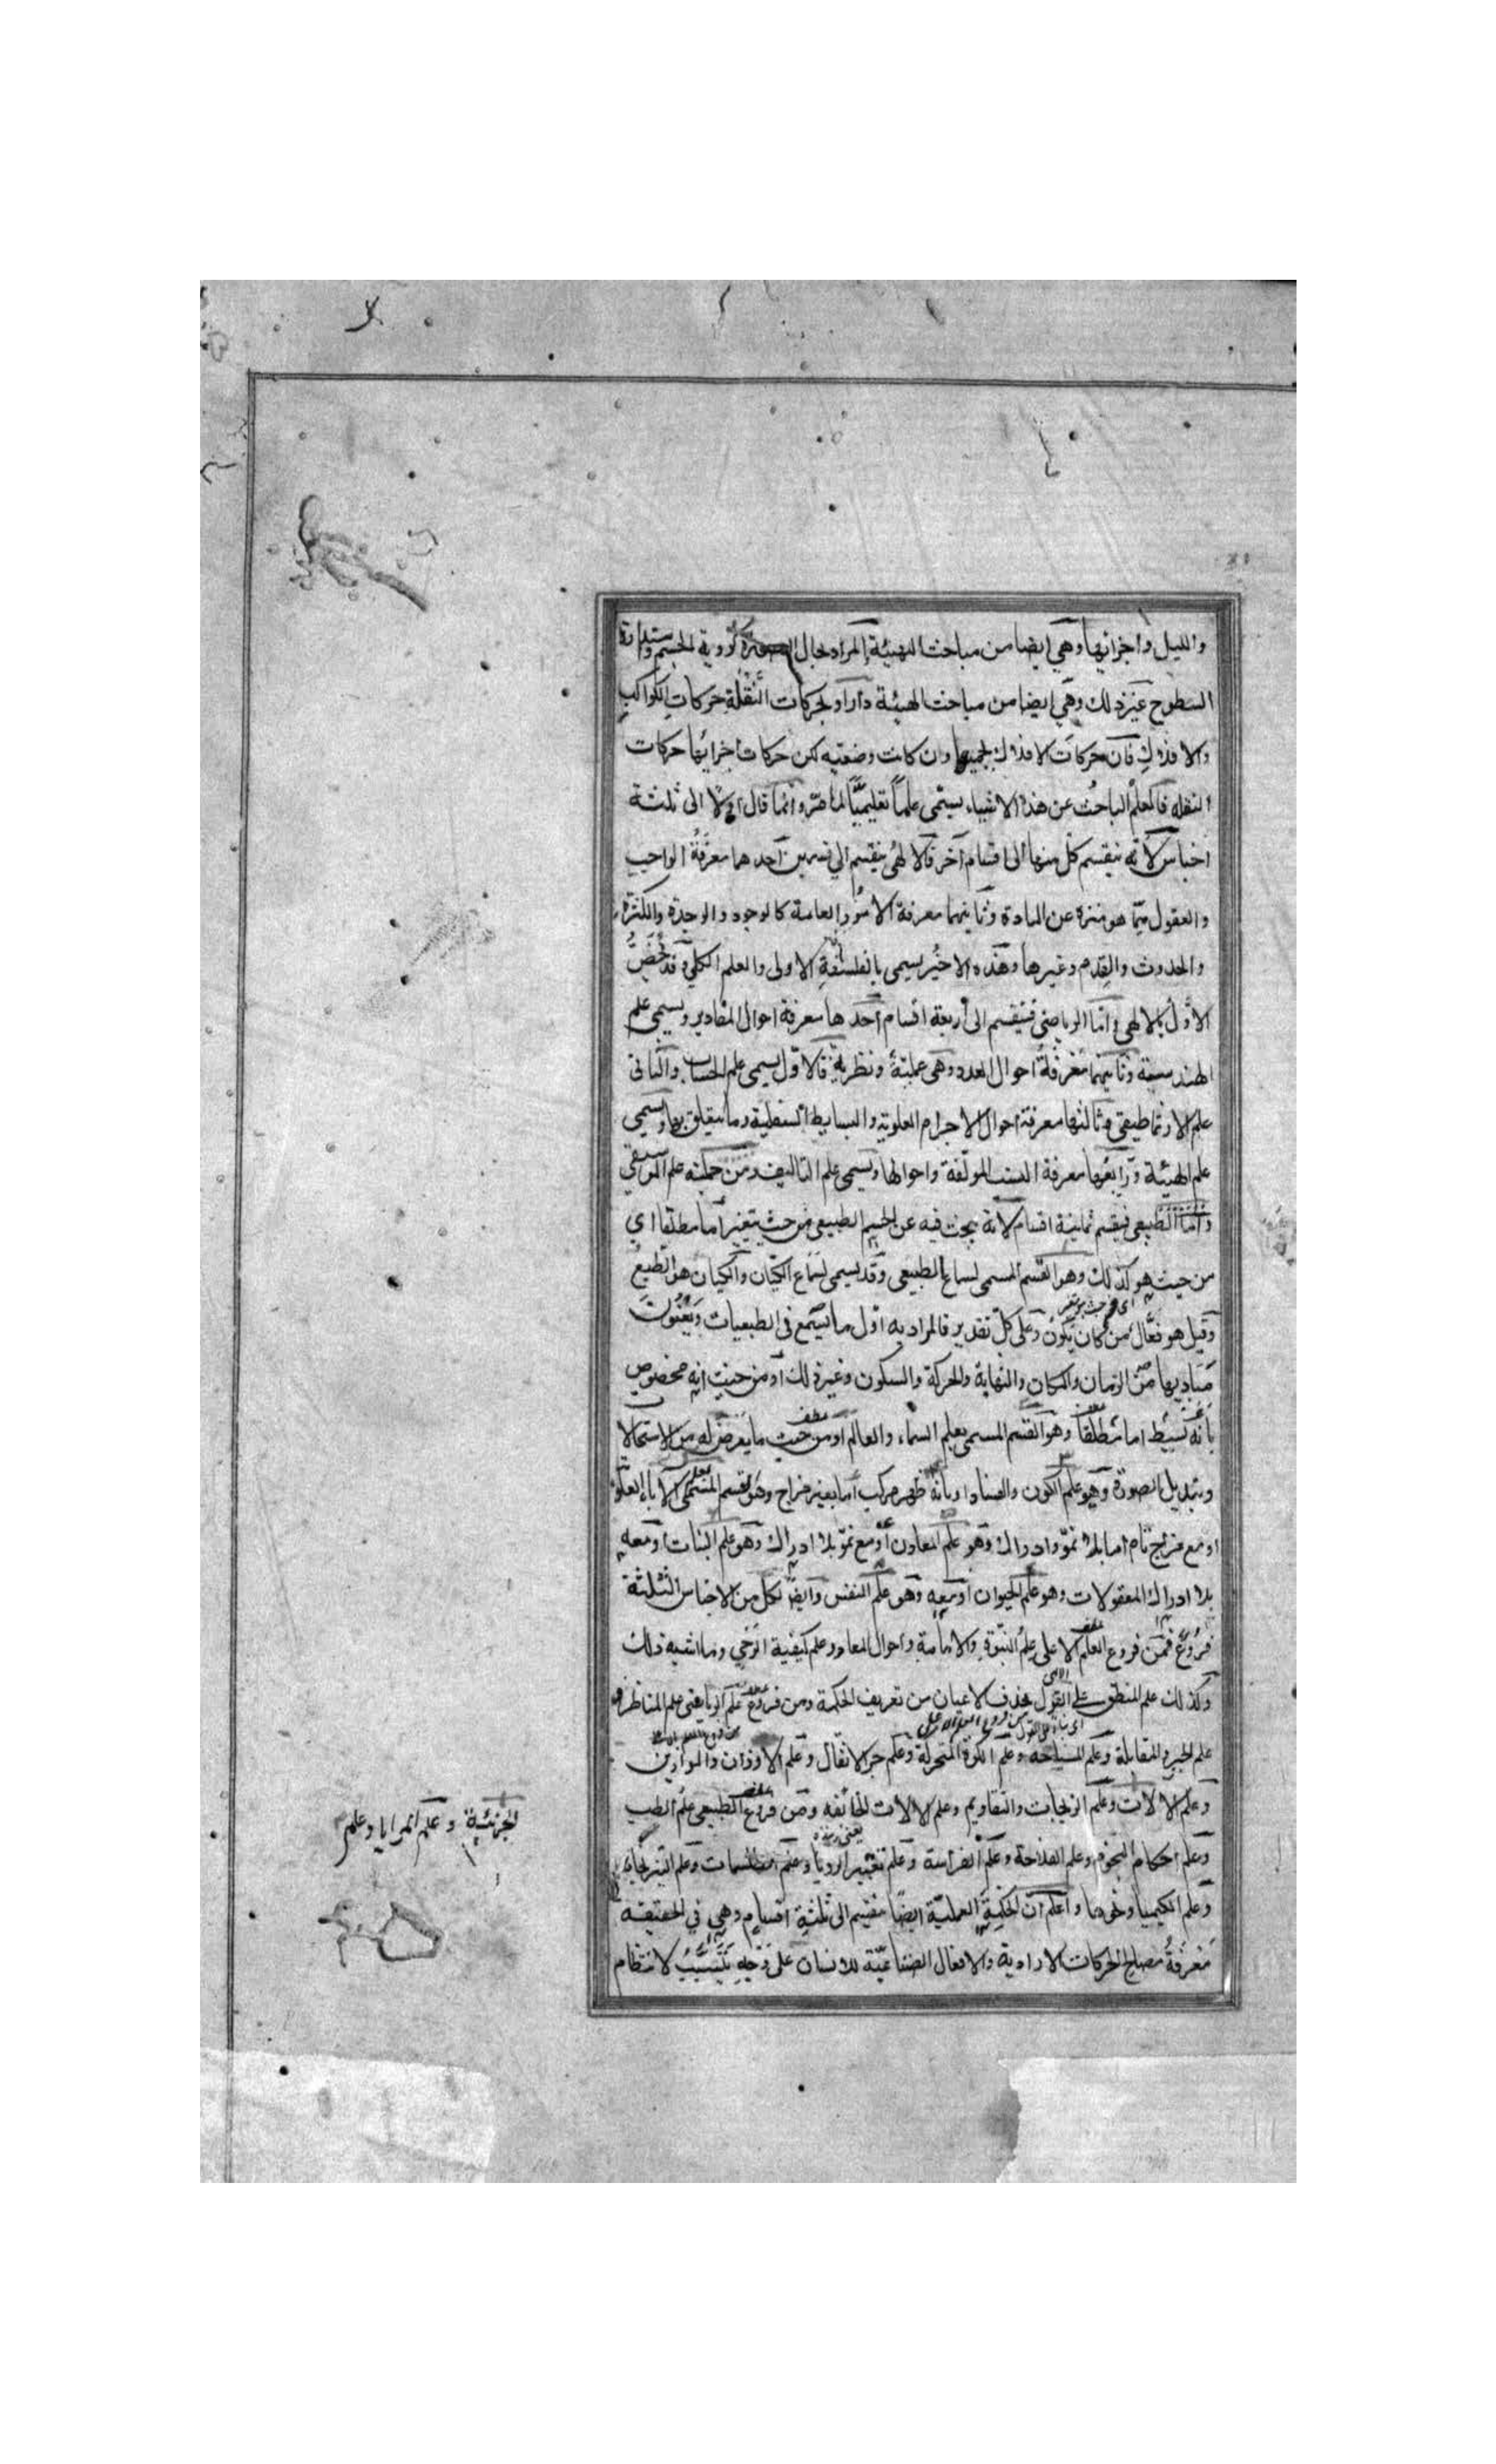 والليل واجزائها وهي ايضا من مباحث الهيئة المراد بحال كروية الجسم واستدارة
السطوح غير ذلك وهي ايضا من مباحث الهيئة واراد بحركات النقلة حركات الكواكب
والافلاك فان حركات الافلاك بجميعها وان كانت وضعيه لكن حركات اجزائها حركات
النقله فالعلم الباحث عن هذه الاشياء يسمى علماً تعليميّاً لما مرّ وانما قال اوّلا الى ثلثة
اجناس لانّه ينقسم كل منها الى اقسام آخر فالالهى ينقسم الى قسمين احدهما معرفة الواجب
والعقول ممّا هو منزه عن المادة وثانيهما معرفة الامور العامة كالوجود والوحدة والكثرة
والحدوث والقدم وغيرها وهذه الاخير يسمى بالفلسفة الاولى والعلم الكلي وقد يُخَصُّ
الاوّل بالالهي وامّا الرياضى فينقسم الى اربعة اقسام احدها معرفة احوال المقادير ويسمى علم
الهندسة وثانيهما معرفة احوال العدد وهى عملية ونظرية فالاوّل يسمى علم الحساب والثانى
علم الارثماطيقى وثالثها معرفة احوال الاجرام العلوية والبسايط السفلية وما يتعلق بها ويسمى
علم الهيئة ورابعها معرفة النسب المولّفة واحوالها ويسمى علم التاليف ومن جملته علم الموسيقى
وامّا الطبيعى فينقسم ثمانية اقسام لانّه يبحث فيه عن الجسم الطبيعى من حيث يتغير اما مطلقا اى
من حيث هو كذلك وهو القسم المسمى لسماع الطبيعى وقد يسمى لسماع الكيان والكيان هو الطبع
اى من حيث يتغير
وقيل هو فعّال من كان يكون وعلى كلّ تقدير فالمراد به اوّل ما يسمع فى الطبيعيات ويعنون
مباديها من الزمان والمكان والنهاية والحركة والسكون وغير ذلك او من حيث انه مخصوص
بانّه بسيط اما مطلقاً وهو القسم المسمى بعلم السماء والعالم او من حيث ما يعرض له من الاستحالا
وتبديل الصورة وهو علم الكون والفساد او بانّه مركب اما بغير مزاج وهو القسم المسمى الآثار العلو
او مع مزاج تام اما بلا نموّ وادراك وهو علم المعادن او مع نموّ بلا ادراك وهو علم النبات او معه
بلا ادراك المعقولات وهو علم الحيوان او معه وهو علم النفس وايضاً لكل من الاجناس الثلثة
فروع فمن فروع العلم الاعلى علم النبوّة والامامة واحوال المعاد وعلم كيفية الوحى وما اشبه ذلك
وكذلك علم المنطق على القول بحذف الاعيان من تعريف الحكمة ومن فروع علم الرياضى علم المناظر و
علم الجبر والمقابلة وعلم المساحة وعلم الكرة المتحركة وعلم جر الاثقال وعلم الاوزان والموازين
وعلم الالات وعلم الزيجات والتقاويم وعلم الالات ومن فروع الطبيعى علم الطب
وعلم احكام النجوم وعلم الفلاحة وعلم الفراسة وعلم تعبير الرؤيا وعلم الطلسمات وعلم النيرنجات
وعلم الكيميا ونحوها واعلم ان الحكمة العملية ايضاً تنقسم الى ثلثة اقسام وهى فى الحقيقة
معرفة مصالح الحركات الارادية والافعال الصناعيّة للانسان على وجه لانتظام
الجزئية وعلم المرايا وعلم